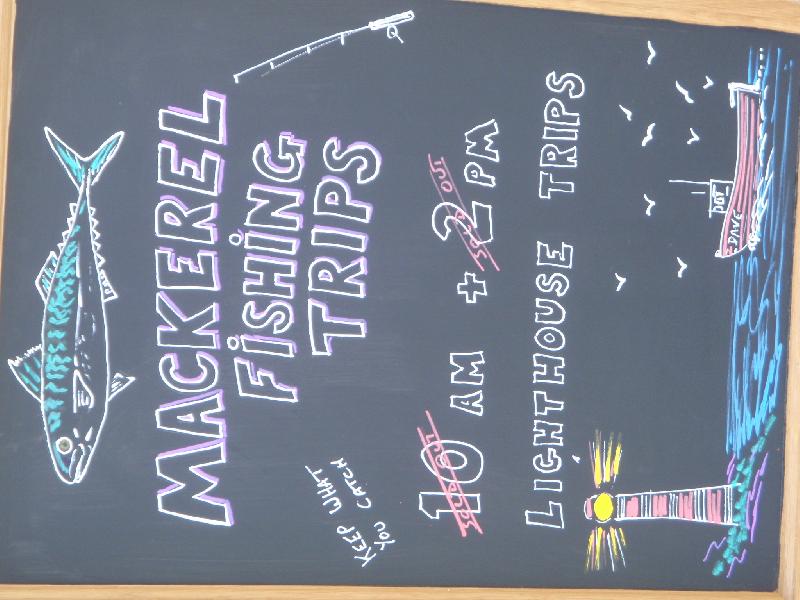 MACKEREL
FISHING
TRIPS
KEEP WHAT
YOU CATCH
10 AM + 2 PM
SOLD OUT
SOLD OUT
LIGHTHOUSE TRIPS
DAVE